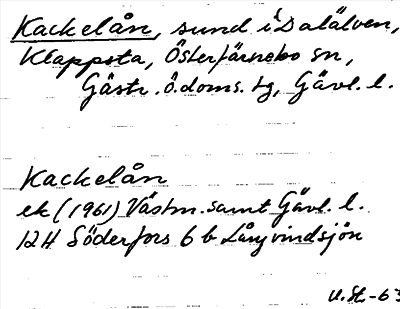 Kackelån, sund i Dalälven,
Klappsta, Österfärnebo sn,
Gästr. ö. doms. tg, Gävl. l.
Kackelån
ek (1961) Västm. samt Gävl. l.
12H Söderfors 6 b Långvindsjön
U.St.-63